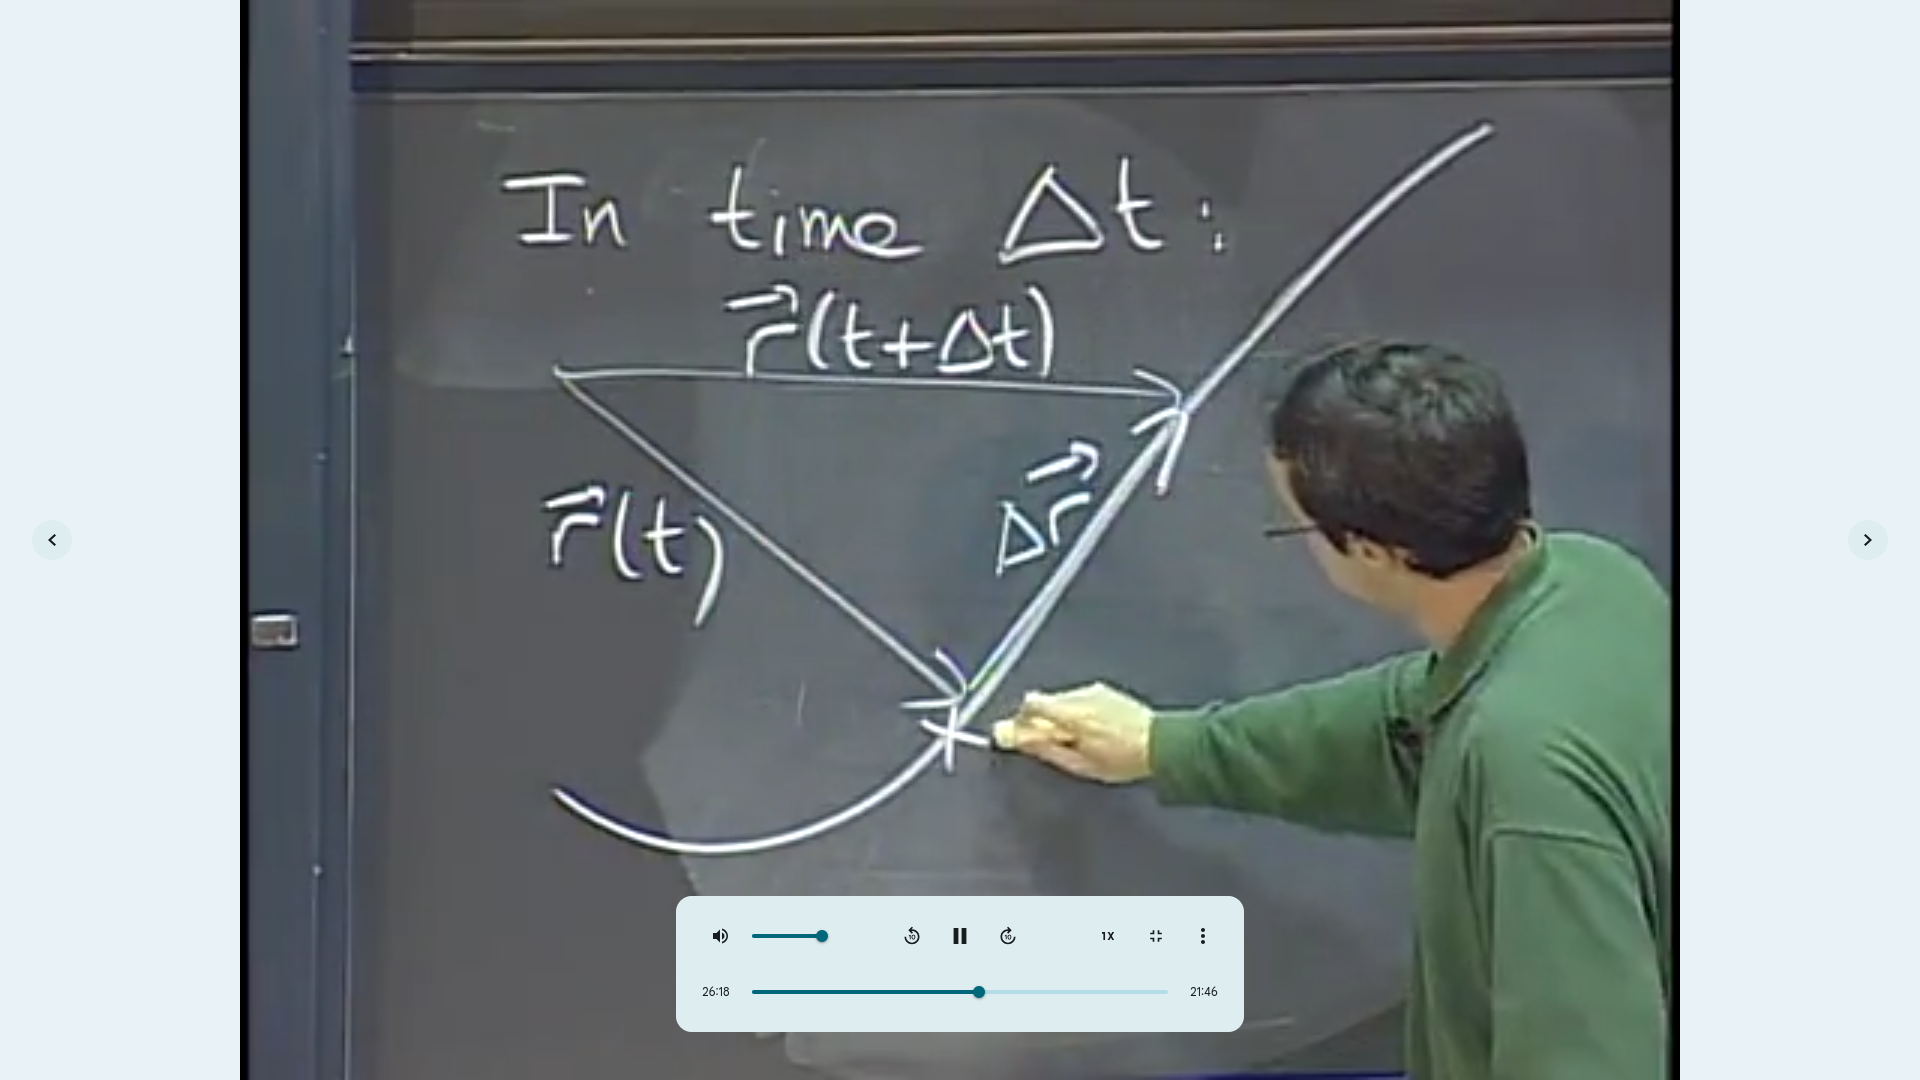 In time Δt:
r⃗(t+Δt)
r⃗(t)
Δr⃗
10
10
1X
26:18
21:46